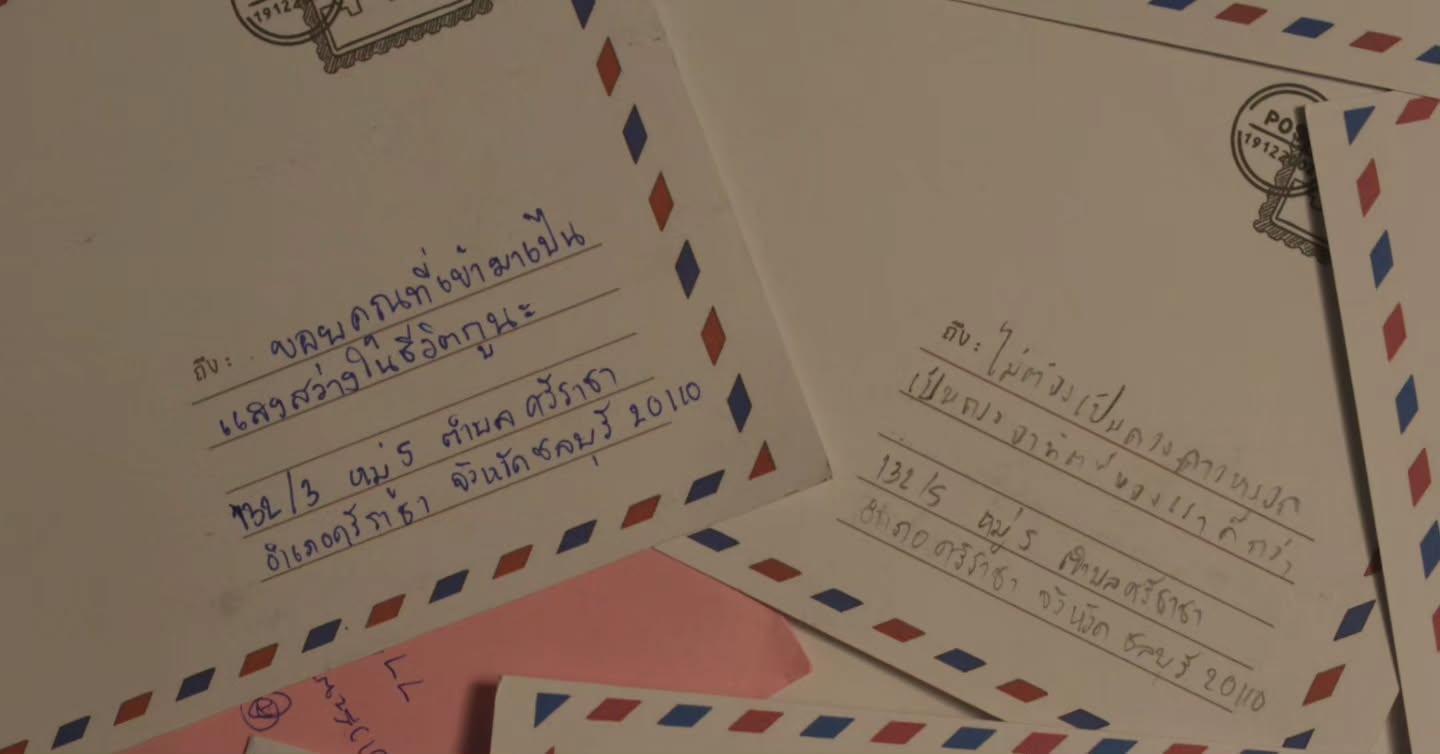 1912
ถึง: ขอบคุณที่เข้ามาเป็น
แสงสว่างในชีวิตกูนะ
132/3 หมู่ 5 ตำบล ศรีราชา
อำเภอศรีราชา จังหวัดชลบุรี 20110
POS
19122
ถึง: ไม่ต้องเป็นดวงดาวหรอก
เป็นดวงอาทิตย์ของเราดีกว่า
132/5 หมู่ 5 ตำบลศรีราชา
อำเภอ ศรีราชา จังหวัด ชลบุรี 20110